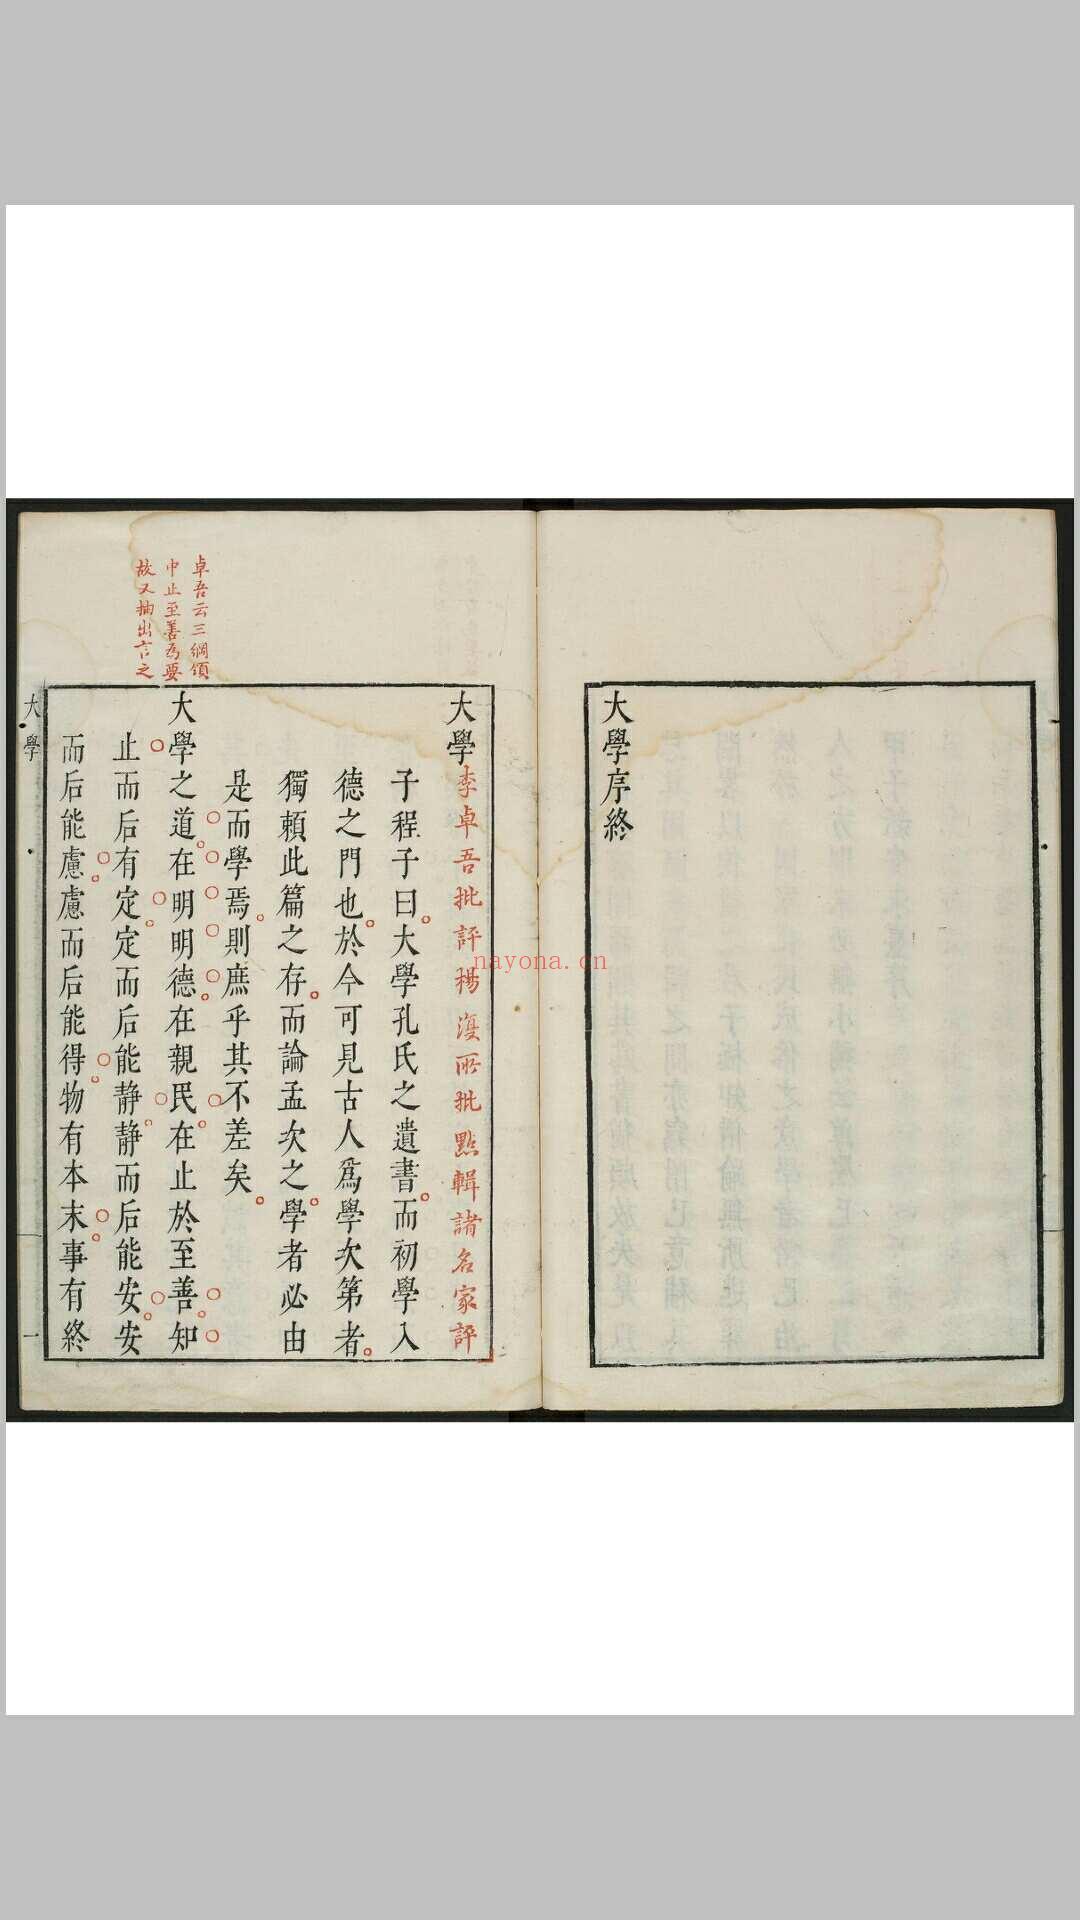 大學序終
大學 李卓吾批評楊復所批點輯諸名家評
子程子曰大學孔氏之遺書而初學入
德之門也於今可見古人爲學次第者
獨賴此篇之存而論孟次之學者必由
是而學焉則庶乎其不差矣
大學之道在明明德在親民在止於至善知
止而后有定定而后能静静而后能安安
而后能慮慮而后能得物有本末事有終
卓吾云三綱領
中止至善爲要
故又抽出言之
大學
一
nayona.cn